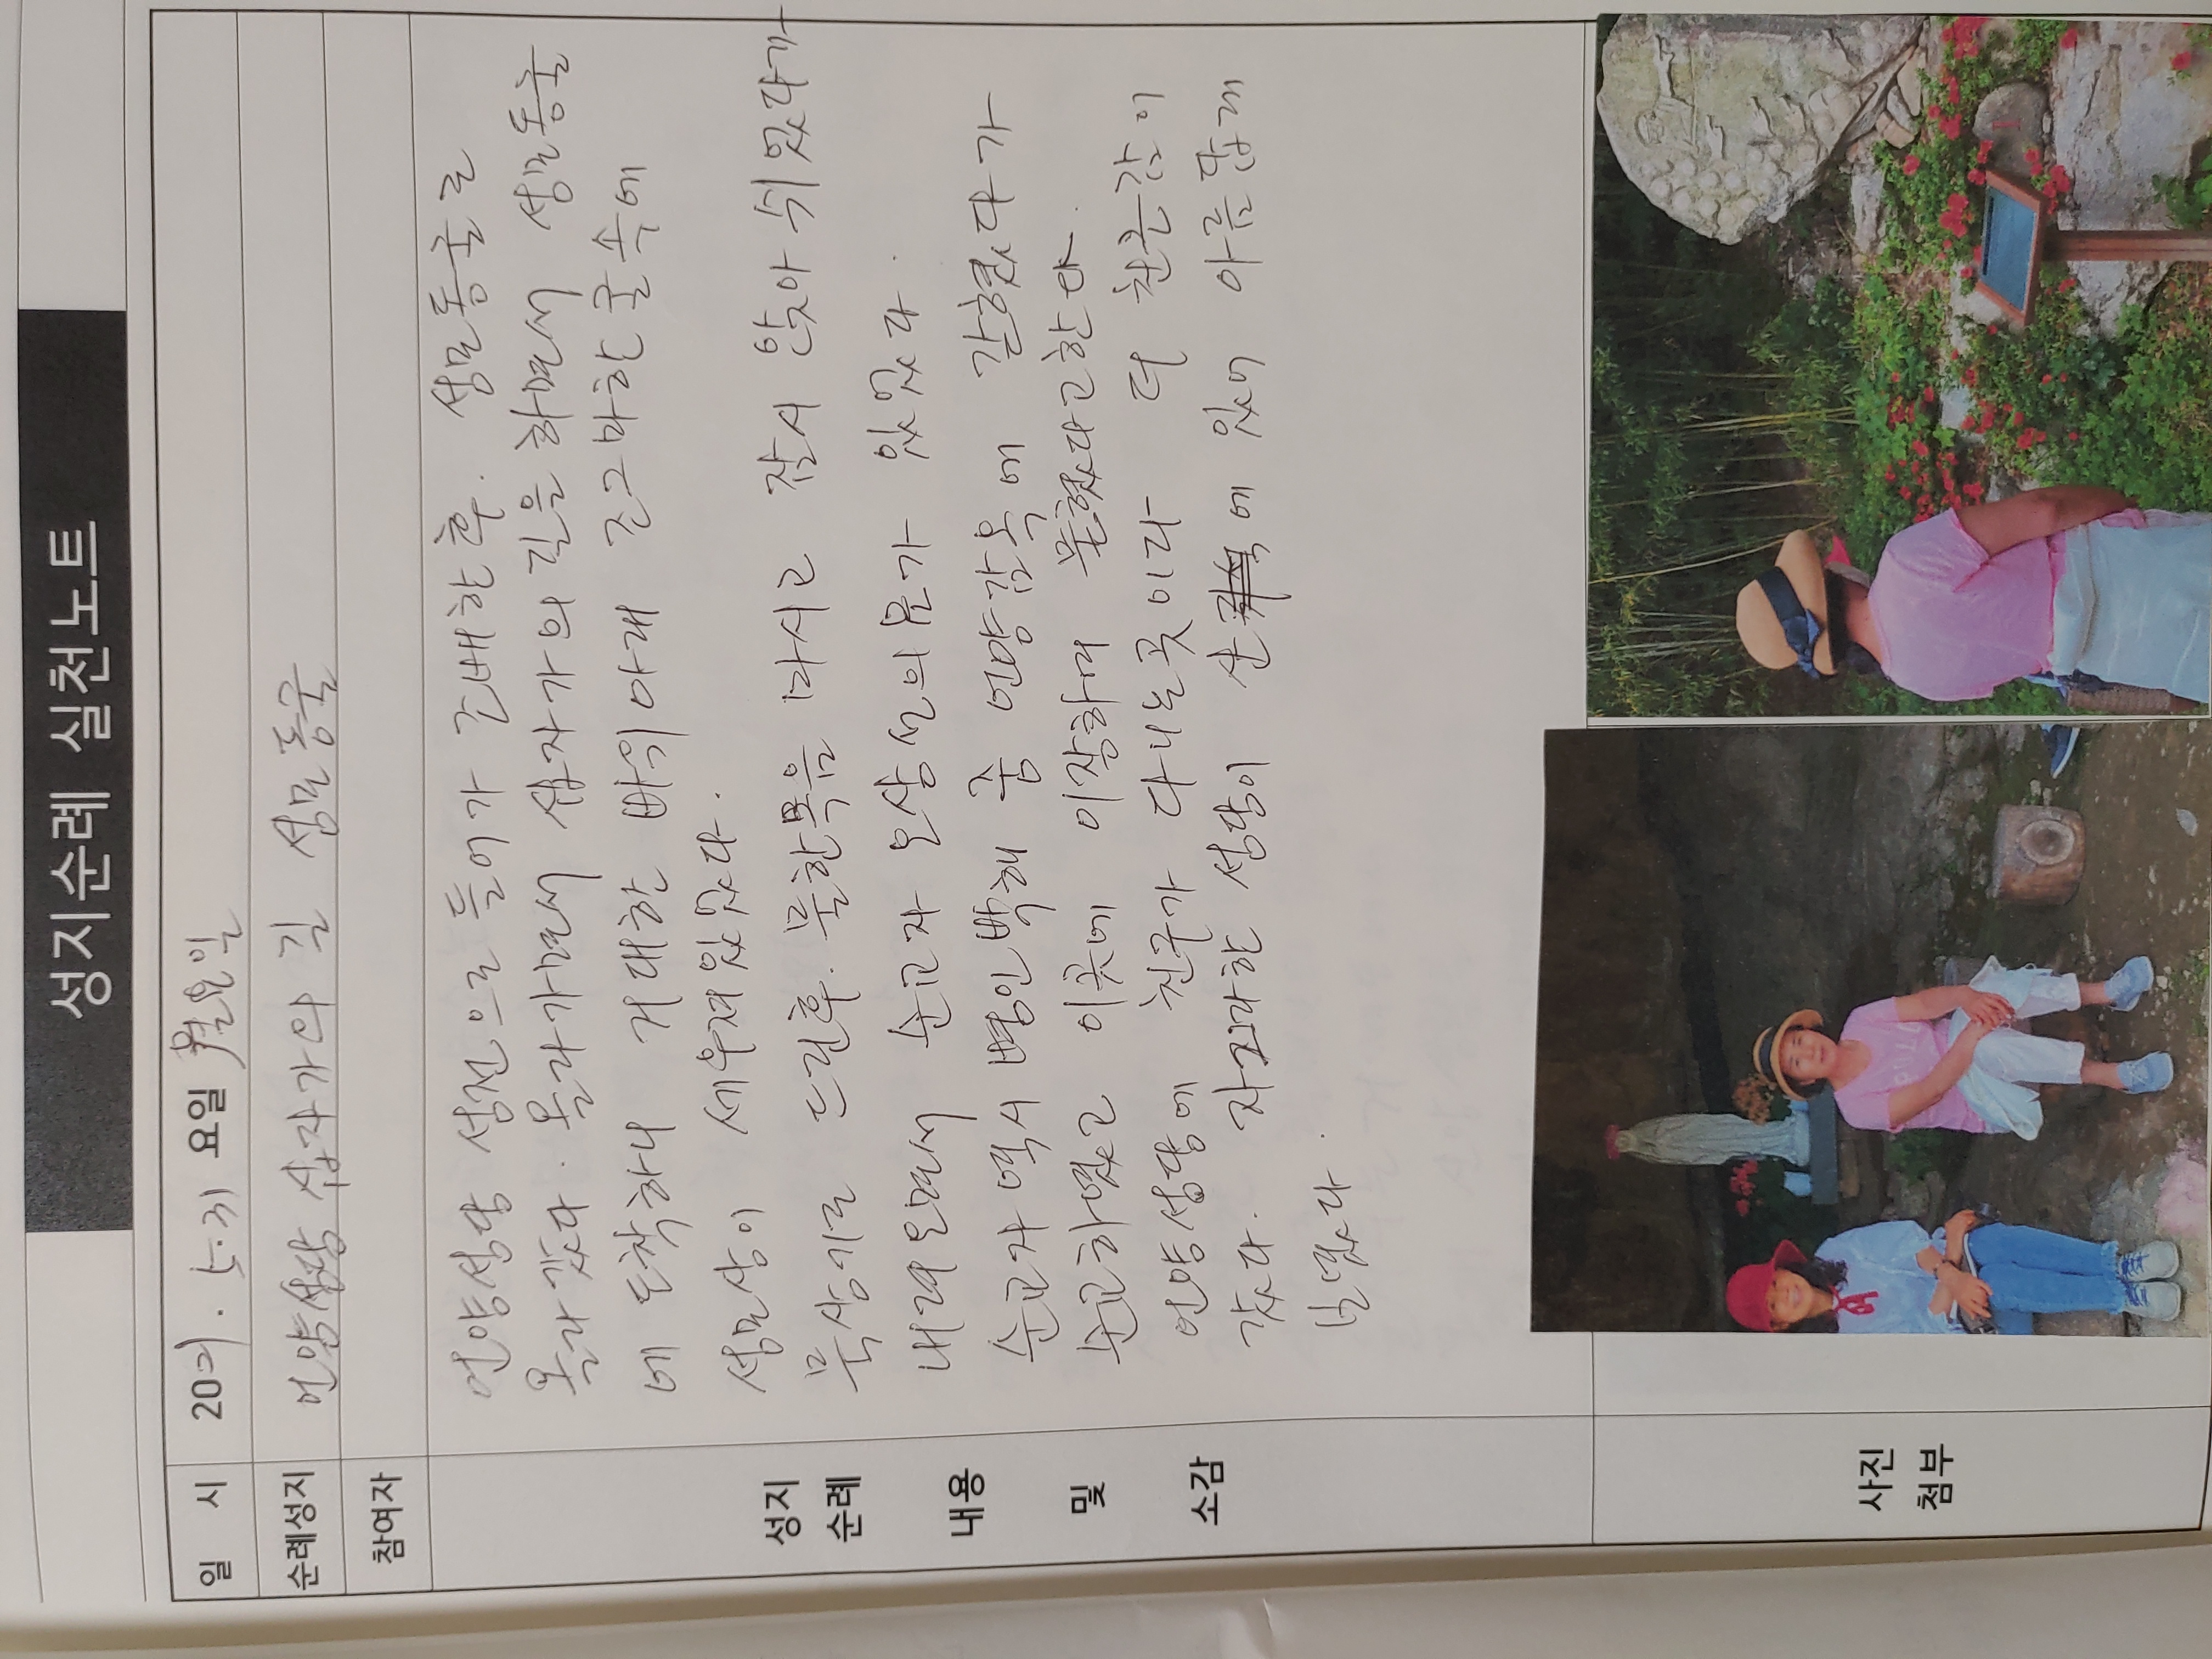 성지순례 실천노트
일 시 2021. 5. 31 요일 월요일
순례성지 언양성당 십자가의 길 성모동굴
참여자
성지 순례 내용 및 소감
언양성당 성전으로 들어가 조배한후. 성모동굴로
올라갔다. 올라가면서 십자가의 길을 하면서 성모동굴
에 도착하니 거대한 바위아래 조그마한 굴속에
성모상이 세우져있었다.
묵상기로 드린후. 물한목음 마시고 잠시 앉아 쉬었다가
내려오면서 순교자 오상선의묘가 있었다.
순교자 역시 병인박해 중 언양감옥에 갇혔다가
순교하였고 이곳에 이장하여 묻혔다고한다.
언양성당에 친구가 다니는곳이라 더 친근감이
갔다. 자그마한 성당이 산 에 있어 아름답게
보였다.
사진 첨부
1